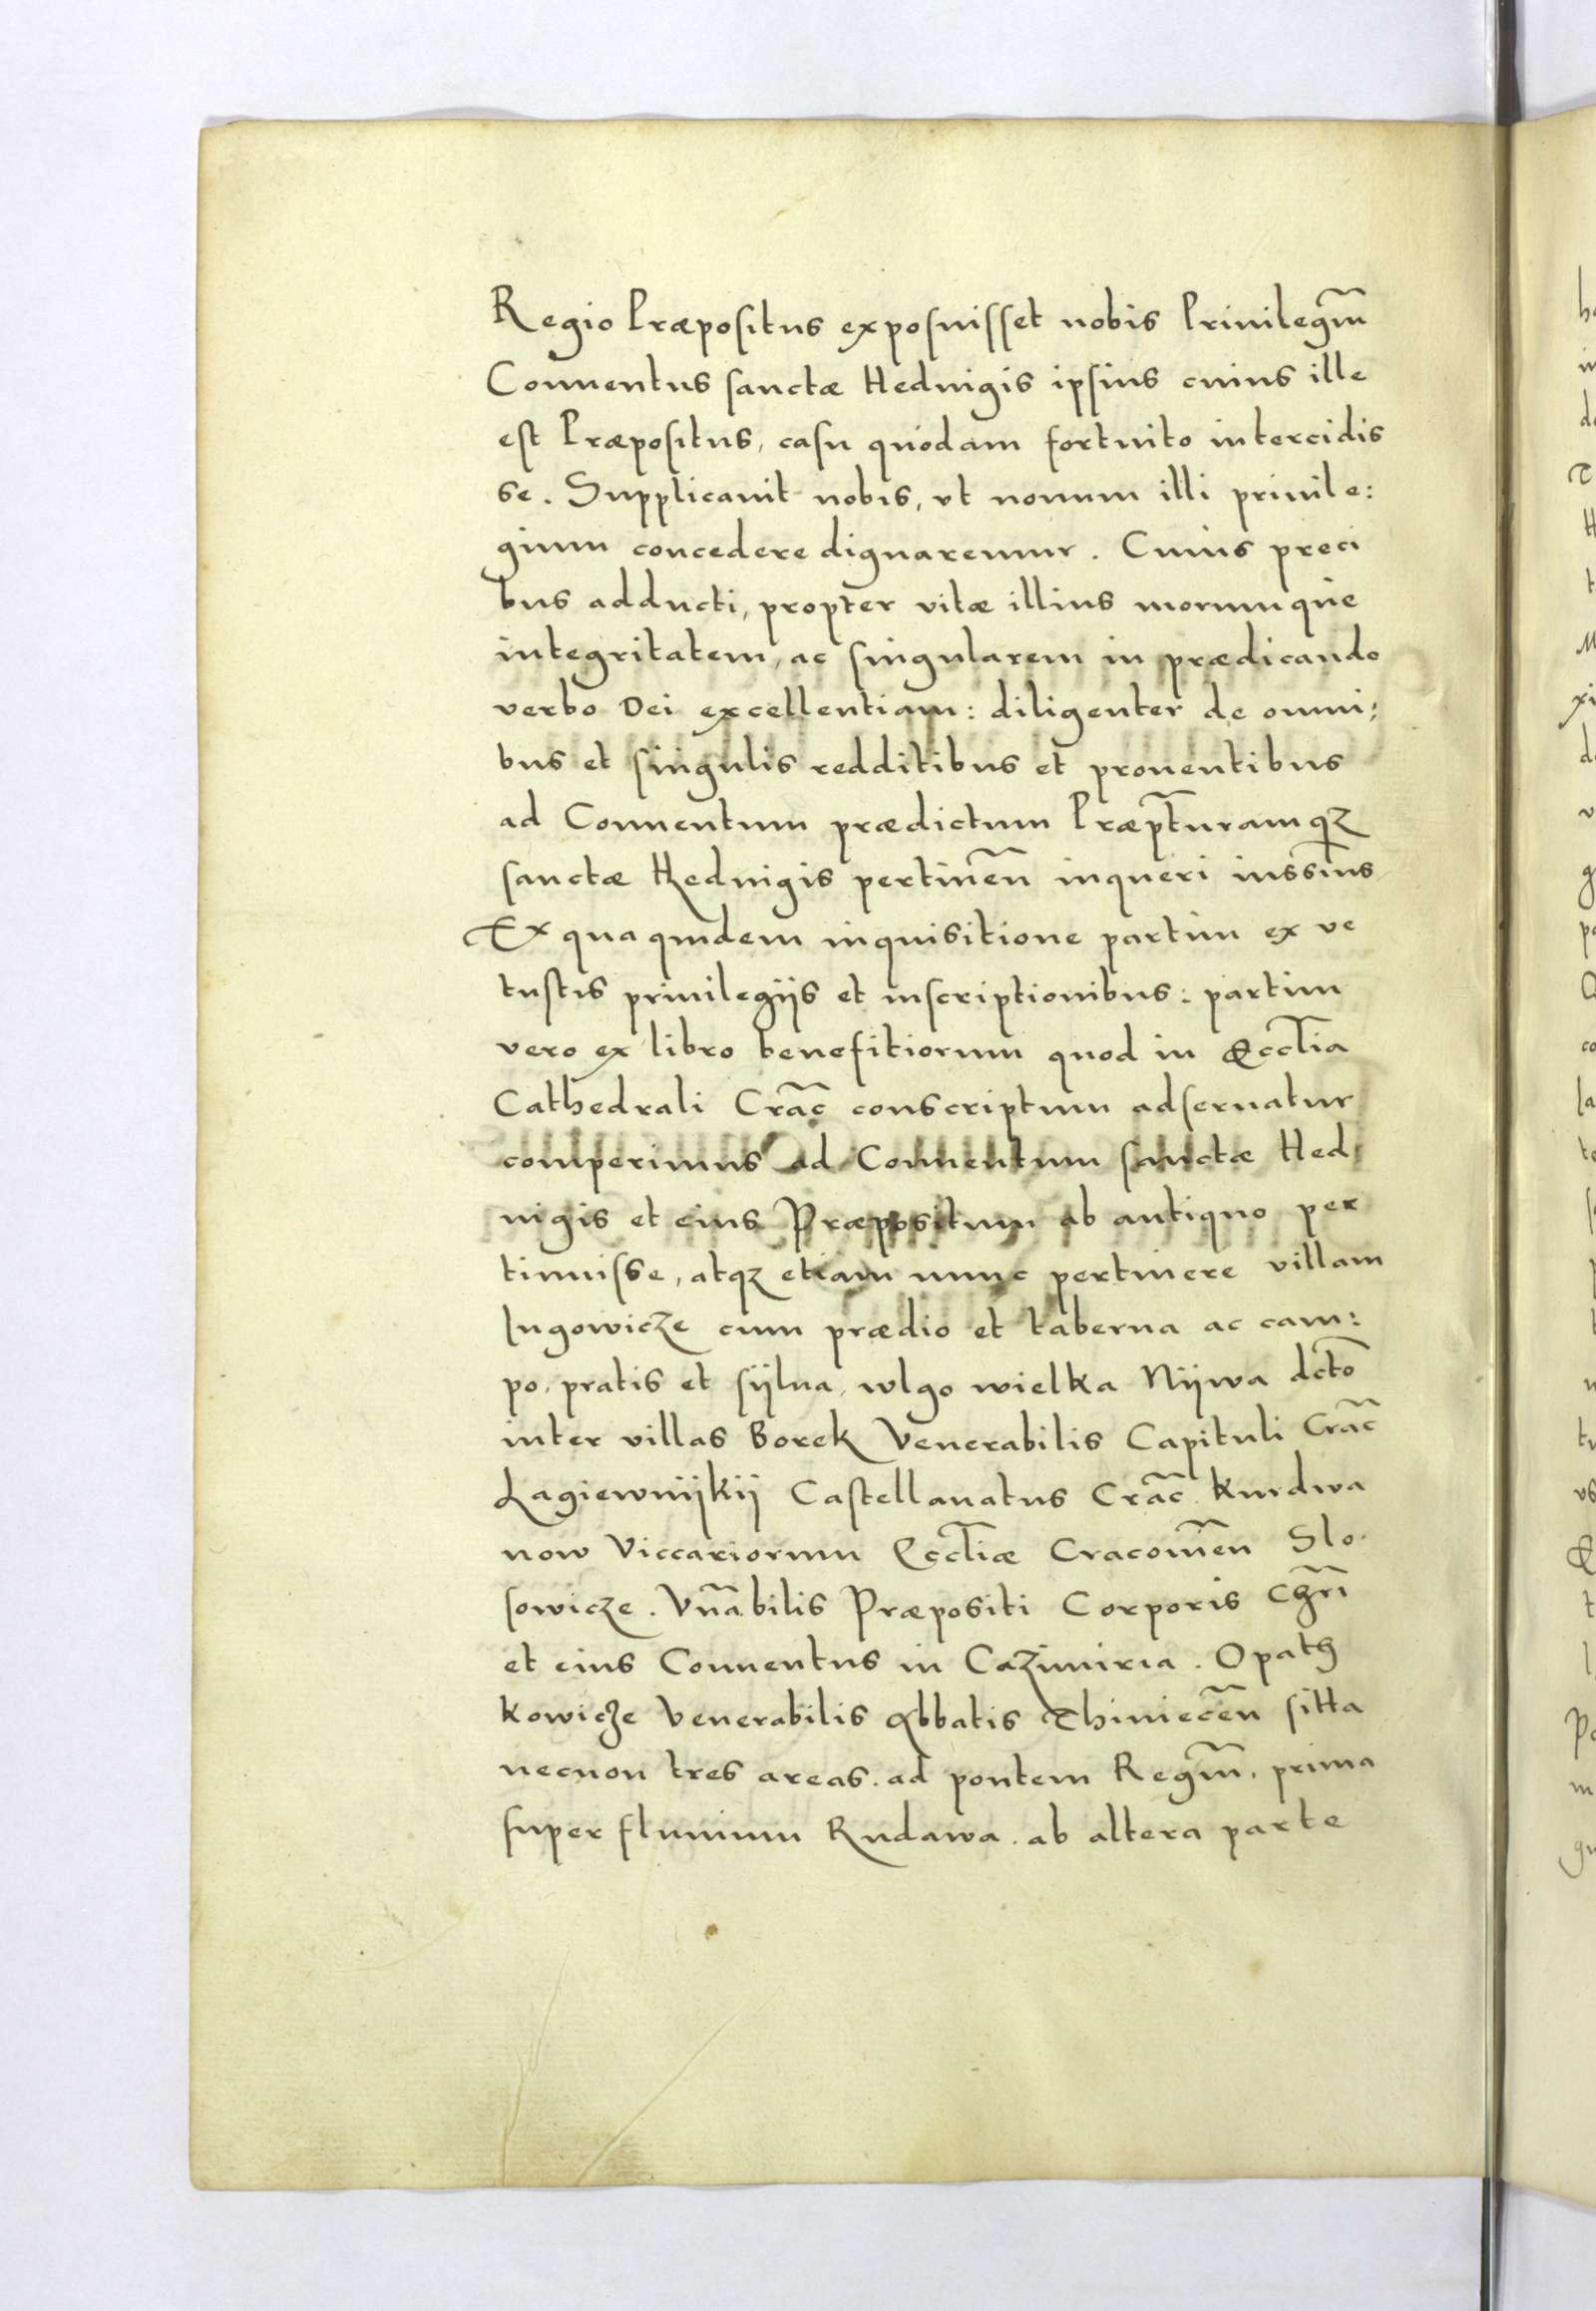 Regio Præpositus exposuisset nobis Priuilegm̃
Conuentus sanctæ Heduigis ipsius cuius ille
est Præpositus, casu quodam fortuito intercidis
se. Supplicauit nobis, vt nouum illi priuile:
gium concedere dignaremur. Cuius preci
bus adducti, propter vitæ illius morumque
integritatem, ac singularem in prædicando
verbo Dei excellentiam: diligenter de omni:
bus et singulis redditibus et prouentibus
ad Conuentum prædictum Præpt̃uramqꝫ
sanctæ Heduigis pertineñ inqueri iussim̃s
Ex qua quidem inquisitione partim ex ve
tustis priuilegijs et inscriptionibus: partim
vero ex libro benefitiorum quod in Eccl̃ia
Cathedrali Crac̃ conscriptum adseruatur
comperimus ad Conuentum sanctæ Hed
uigis et eius Præpositum ab antiquo per
tinuisse, atqꝫ etiam nunc pertinere villam
Iugowicze cum prædio et taberna ac cam:
po, pratis et sÿlua, wlgo wielka Nÿwa dct̃o
inter villas Borek Venerabilis Capituli Crac̃
Lagiewnÿkÿ Castellanatus Crac̃. Kurdwa
now Viccariorum Eccl̃iæ Cracouień Slo
sowicze. Vnãbilis Præpositi Corporis Chr̃i
et eius Conuentus in Cazimiria. Opath
kowicze Venerabilis Abbatis Thinieceñ sitta
necnon tres areas. ad pontem Regm̃. prima
super fluuium Rudawa. ab altera parte